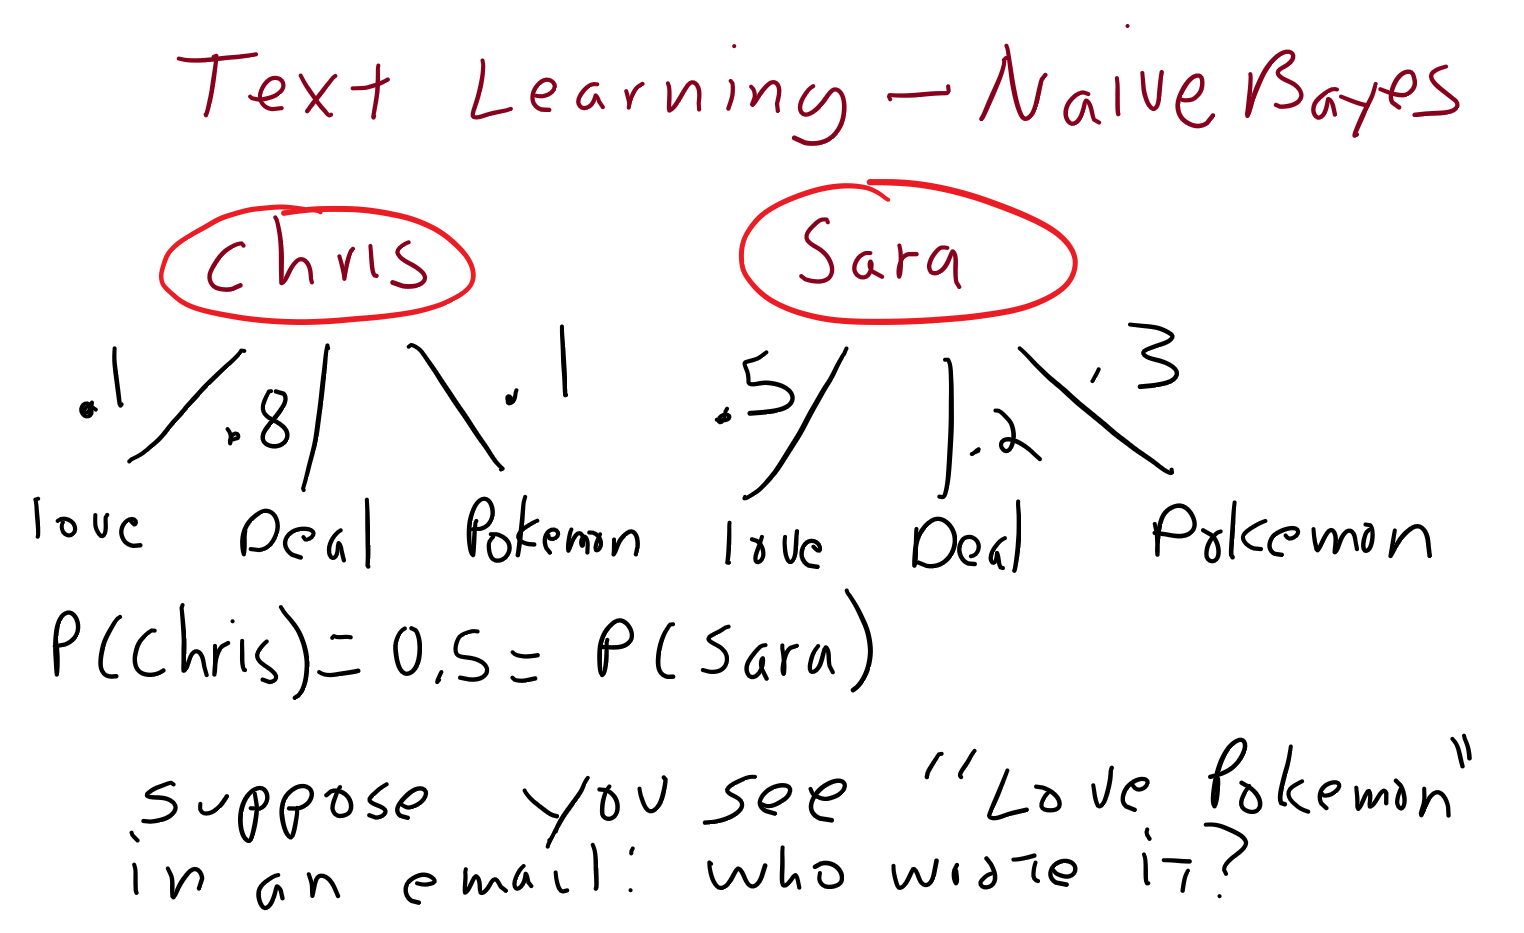 Text Learning - Naive Bayes
Chris Sara
.1 .8 .1 .5 .2 .3
love Deal Pokemon love Deal Pokemon
P(Chris) = 0.5 = P(Sara)
suppose you see "Love Pokemon"
in an email: who wrote it?